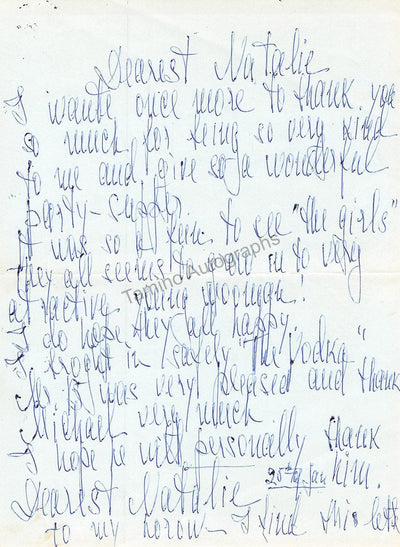 Dearest Natalie
I wante once more to thank you
so much for being so very kind
to me and give so a wonderful
party – supper.
I was so fun to see "the girls"
they all seems to in to very
atractive young wooman!
I do hope they all happy.
I broght in safely "The Vodka"
Mr was very pleased and thank
Michael very much
I hope he will personally thank
him.
Dearest Natalie 25th of Jan
to my horow – I find this lett
Tamino Autographs